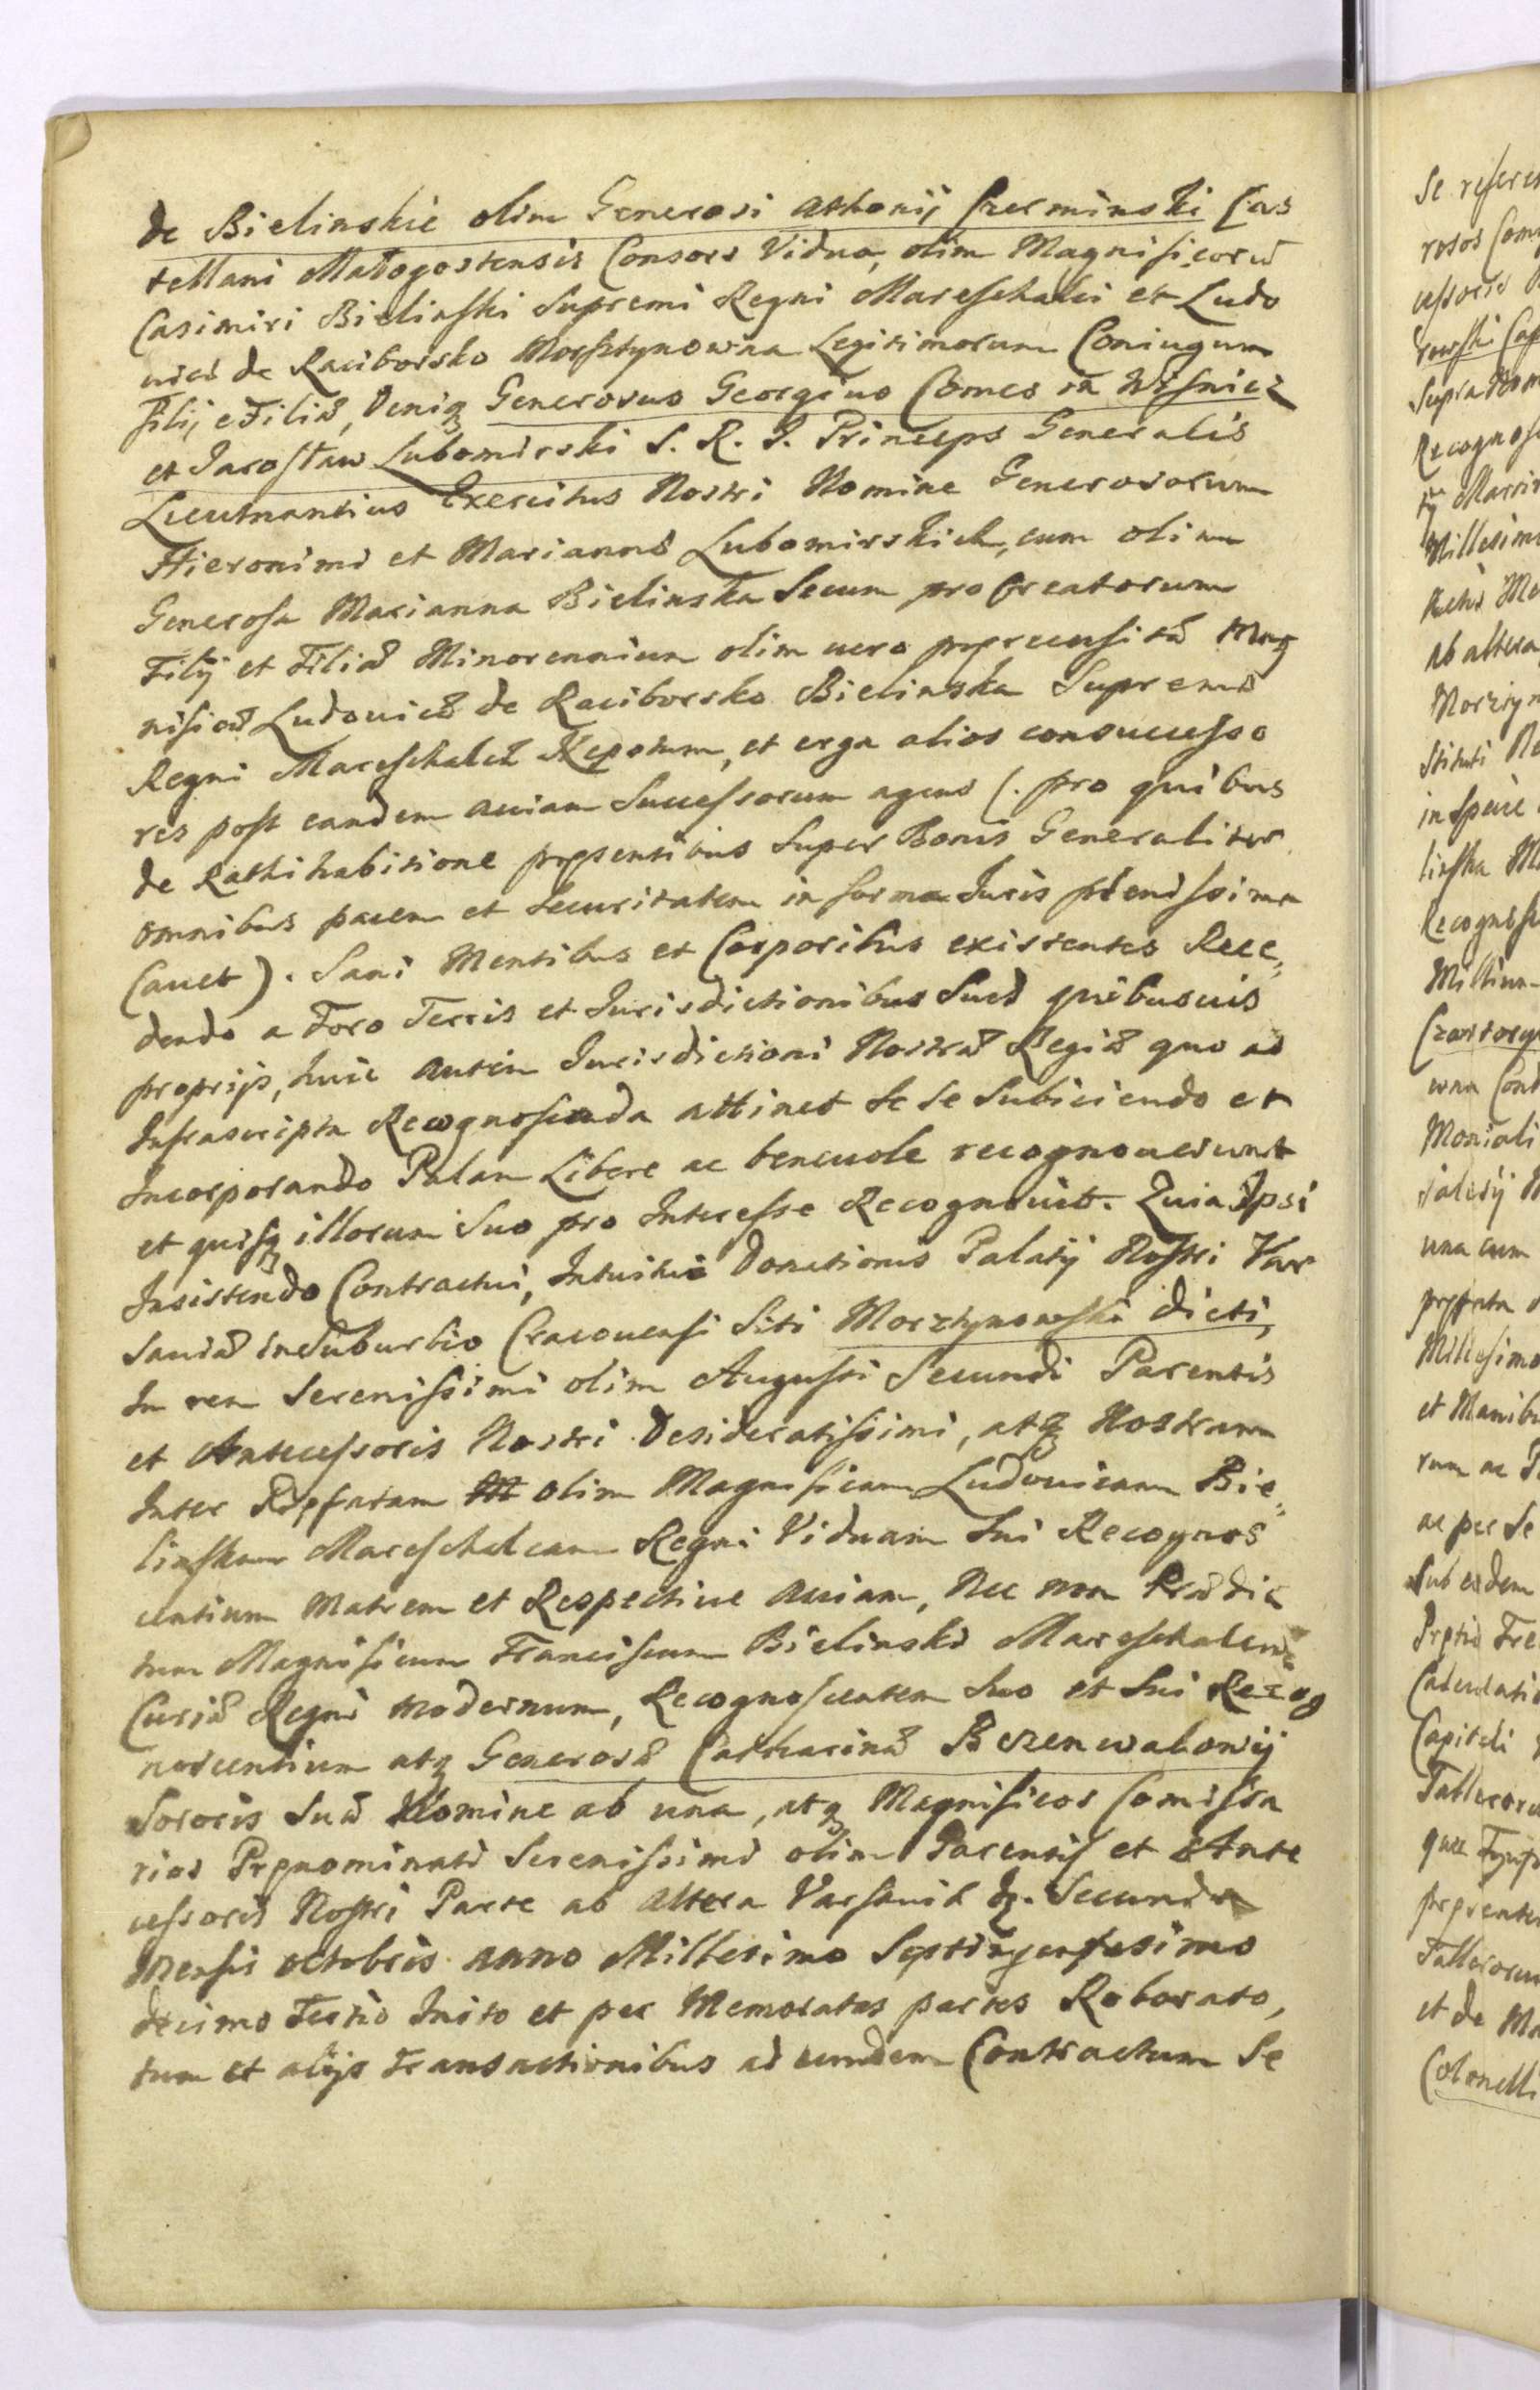 de Bielinskie olim Generosi Athonij Czerminski Cas
tellani Małogostensis Consors Vidua, olim Magnificorū
Casimiri Bielinski Supremi Regni Mareschalci et Ludo
uicæ de Raciborsko Morsztynowna Legitimorum Coniugum
filij e Filiæ, Deniq Generosus Georgius Comes in Wisnicz
et Jarosław Lubomirski S. R. J. Princeps Generalis
Lieutnantius Exercitus Nostri Nomine Generosorum
Hieronimi et Mariannæ Lubomirskich, cum olim
Generosa Marianna Bielinska Secum pro Creatorum
Filij et Filiæ Minorennium olim uero prærecensitæ Mag
nificæ Ludouicæ de Raciborsko Bielinska Supremæ
Regni Mareschalcæ Nepotum, et erga alios consuccesso
res post eandem auiam Successorum agens (. pro quibus
de Rathihabitione præsentibus Super Bonis Generaliter
omnibus pacem et Securitatem in forma Juris plenissima
Cauet). Sani Mentibus et Corporibus existentes Rece„
dendo a Foro Terris et Jurisdictionibus Suis quibusuis
proprijs, huic autem Jurisdictioni Nostræ Regiæ quo ad
Infrascripta Recognoscenda attinet Se Se Subiiciendo et
Incorporando Palam Libere ac beneuole recognouerunt
et quisq illorum Suo pro Interesse Recognouit. Quia Ipsi
Insistendo Contractui, Intuitu Donationis Palatij Nostri Var
sauiæ in Suburbio Cracouensi Siti Morztynowski dicti,
In rem Serenissimi olim Augusti Secundi Parentis
et Antecessoris Nostri Desideratissimi, atq Nostram
Inter Præfatam olim Magnificam Ludouicam Bie„
linskam Mareschalcam Regni Viduam Sui Recognos
centium Matrem et Respectiue Auiam, Nec non Prædic
tum Magnificum Franciscum Bielinski Mareschalcum
Curiæ Regni modernum, Recognoscentem Suo et Sui Recog
noscentium atq Generosæ Catharinæ Bezenwalowy
Sororis Suæ Nomine ab una, atq Magnificos Comissa
rios Prænominati Serenissimi olim Parentis et Ante
cessoris Nostri Parte ab altera Varsauiæ Secunda
Mensis octobris anno Millesimo Septingentesimo
decimo Tertio Inito et per Memoratas partes Roborato,
tum et alijs Transactionibus ad eundem Contractum Se